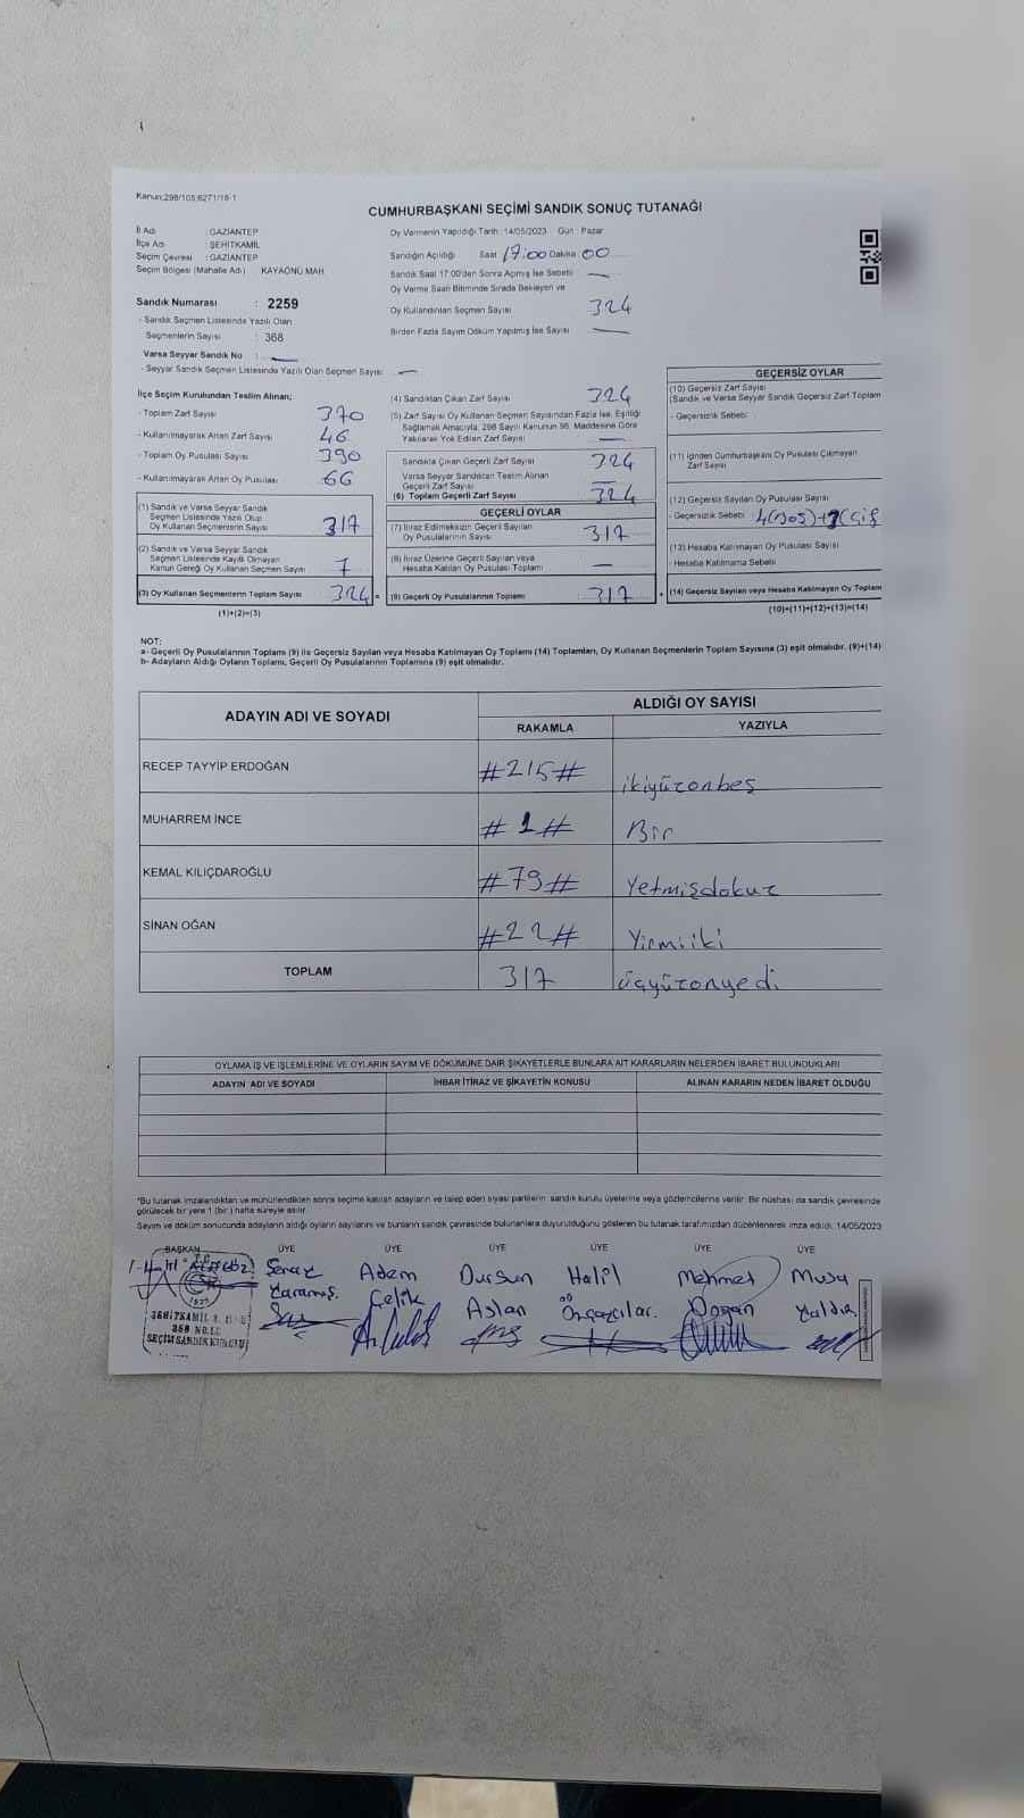 Kanun:298/105;6271/18-1
CUMHURBAŞKANI SEÇİMİ SANDIK SONUÇ TUTANAĞI
İl Adı : GAZİANTEP
İlçe Adı : ŞEHİTKAMİL
Seçim Çevresi : GAZİANTEP
Seçim Bölgesi (Mahalle Adı) KAYAÖNÜ MAH
Oy Vermenin Yapıldığı Tarih : 14/05/2023 Gün : Pazar
Sandığın Açıldığı Saat 17:00 Dakika 00
Sandık Saat 17:00'den Sonra Açılmış İse Sebebi —
Oy Verme Saati Bitiminde Sırada Bekleyen ve
Oy Kullandırılan Seçmen Sayısı 324
Birden Fazla Sayım Döküm Yapılmış İse Sayısı —
Sandık Numarası : 2259
- Sandık Seçmen Listesinde Yazılı Olan
Seçmenlerin Sayısı : 368
Varsa Seyyar Sandık No : —
- Seyyar Sandık Seçmen Listesinde Yazılı Olan Seçmen Sayısı —
İlçe Seçim Kurulundan Teslim Alınan;
- Toplam Zarf Sayısı 370
- Kullanılmayarak Artan Zarf Sayısı 46
- Toplam Oy Pusulası Sayısı 390
- Kullanılmayarak Artan Oy Pusulası 66
(1) Sandık ve Varsa Seyyar Sandık
Seçmen Listesinde Yazılı Olup
Oy Kullanan Seçmenlerin Sayısı 317
(2) Sandık ve Varsa Seyyar Sandık
Seçmen Listesinde Kayıtlı Olmayan
Kanun Gereği Oy Kullanan Seçmen Sayısı 7
(3) Oy Kullanan Seçmenlerin Toplam Sayısı 324
(1)+(2)=(3)
(4) Sandıktan Çıkan Zarf Sayısı 324
(5) Zarf Sayısı Oy Kullanan Seçmen Sayısından Fazla İse, Eşitliği
Sağlamak Amacıyla, 298 Sayılı Kanunun 98. Maddesine Göre
Yakılarak Yok Edilen Zarf Sayısı —
Sandıkta Çıkan Geçerli Zarf Sayısı 324
Varsa Seyyar Sandıktan Teslim Alınan
Geçerli Zarf Sayısı —
(6) Toplam Geçerli Zarf Sayısı 324
GEÇERLİ OYLAR
(7) İtiraz Edilmeksizin Geçerli Sayılan
Oy Pusulalarının Sayısı 317
(8) İtiraz Üzerine Geçerli Sayılan veya
Hesaba Katılan Oy Pusulası Toplamı —
= (9) Geçerli Oy Pusulalarının Toplamı 317
GEÇERSİZ OYLAR
(10) Geçersiz Zarf Sayısı
(Sandık ve Varsa Seyyar Sandık Geçersiz Zarf Toplam
- Geçersizlik Sebebi
(11) İçinden Cumhurbaşkanı Oy Pusulası Çıkmayan
Zarf Sayısı
(12) Geçersiz Sayılan Oy Pusulası Sayısı
- Geçersizlik Sebebi
(13) Hesaba Katılmayan Oy Pusulası Sayısı
- Hesaba Katılmama Sebebi
+ (14) Geçersiz Sayılan veya Hesaba Katılmayan Oy Toplam
(10)+(11)+(12)+(13)=(14)
NOT:
a- Geçerli Oy Pusulalarının Toplamı (9) ile Geçersiz Sayılan veya Hesaba Katılmayan Oy Toplamı (14) Toplamları, Oy Kullanan Seçmenlerin Toplam Sayısına (3) eşit olmalıdır. (9)+(14)
b- Adayların Aldığı Oyların Toplamı, Geçerli Oy Pusulalarının Toplamına (9) eşit olmalıdır.
ADAYIN ADI VE SOYADI ALDIĞI OY SAYISI
RAKAMLA YAZIYLA
RECEP TAYYİP ERDOĞAN #215# ikiyüzonbeş
MUHARREM İNCE #1# Bir
KEMAL KILIÇDAROĞLU #79# Yetmişdokuz
SİNAN OĞAN #22# Yirmiiki
TOPLAM 317 üçyüzonyedi
OYLAMA İŞ VE İŞLEMLERİNE VE OYLARIN SAYIM VE DÖKÜMÜNE DAİR ŞİKAYETLERLE BUNLARA AİT KARARLARIN NELERDEN İBARET BULUNDUKLARI
ADAYIN ADI VE SOYADI İHBAR İTİRAZ VE ŞİKAYETİN KONUSU ALINAN KARARIN NEDEN İBARET OLDUĞU
*Bu tutanak imzalandıktan ve mühürlendikten sonra seçime katılan adayların ve talep eden siyasi partilerin sandık kurulu üyelerine veya gözlemcilerine verilir. Bir nüshası da sandık çevresinde
görülecek bir yere 1 (bir) hafta süreyle asılır.
Sayım ve döküm sonucunda adayların aldığı oyların sayılarını ve bunların sandık çevresinde bulunanlara duyurulduğunu gösteren bu tutanak tarafımızdan düzenlenerek imza edildi. 14/05/2023
BAŞKAN ÜYE ÜYE ÜYE ÜYE ÜYE ÜYE
Adem Dursun Halil Mehmet Musa
Çelik Aslan Doğan